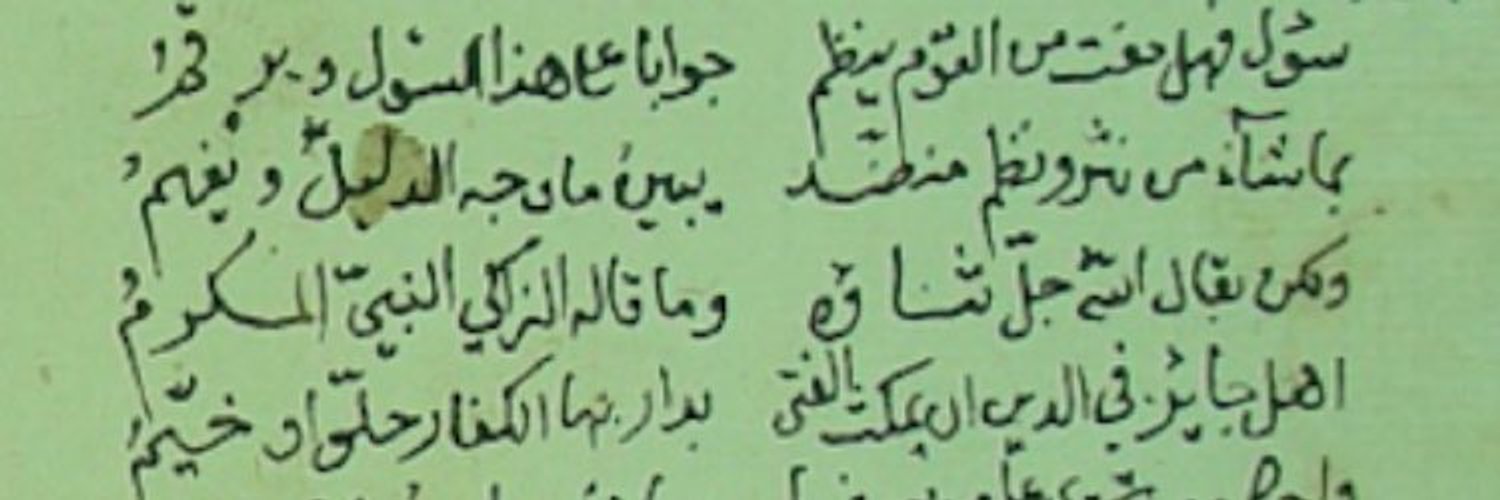 سؤل فهل مفت من القوم ينظم جوابا على هذا السؤل و يرقم
بما شآء من نثر ونظم منضد يبين ما وجه الدليل و يفهم
ولكن بقال الله جل ثناؤه وما قاله الزاكي النبي المكرم
اهل جايز في الدين ان يمكث الفتى بدار بها الكفار حلوا و خيم